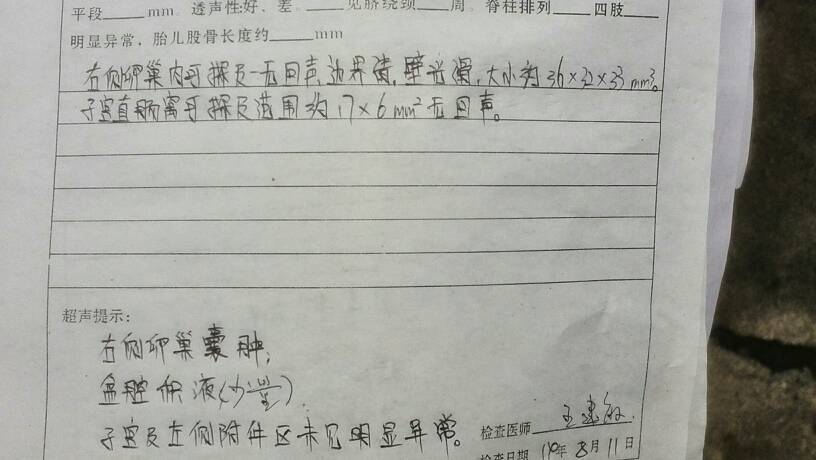 平段____mm。透声性:好、差。____见脐绕颈____周。脊柱排列____四肢____
明显异常，胎儿股骨长度约____mm
右侧卵巢内可探及一无回声，边界清，壁光滑，大小约36×32×33mm³。
子宫直肠窝可探及范围约17×6mm²无回声。
超声提示：
右侧卵巢囊肿；
盆腔积液(少量)
子宫及左侧附件区未见明显异常。
检查医师
检查日期 年8月11日